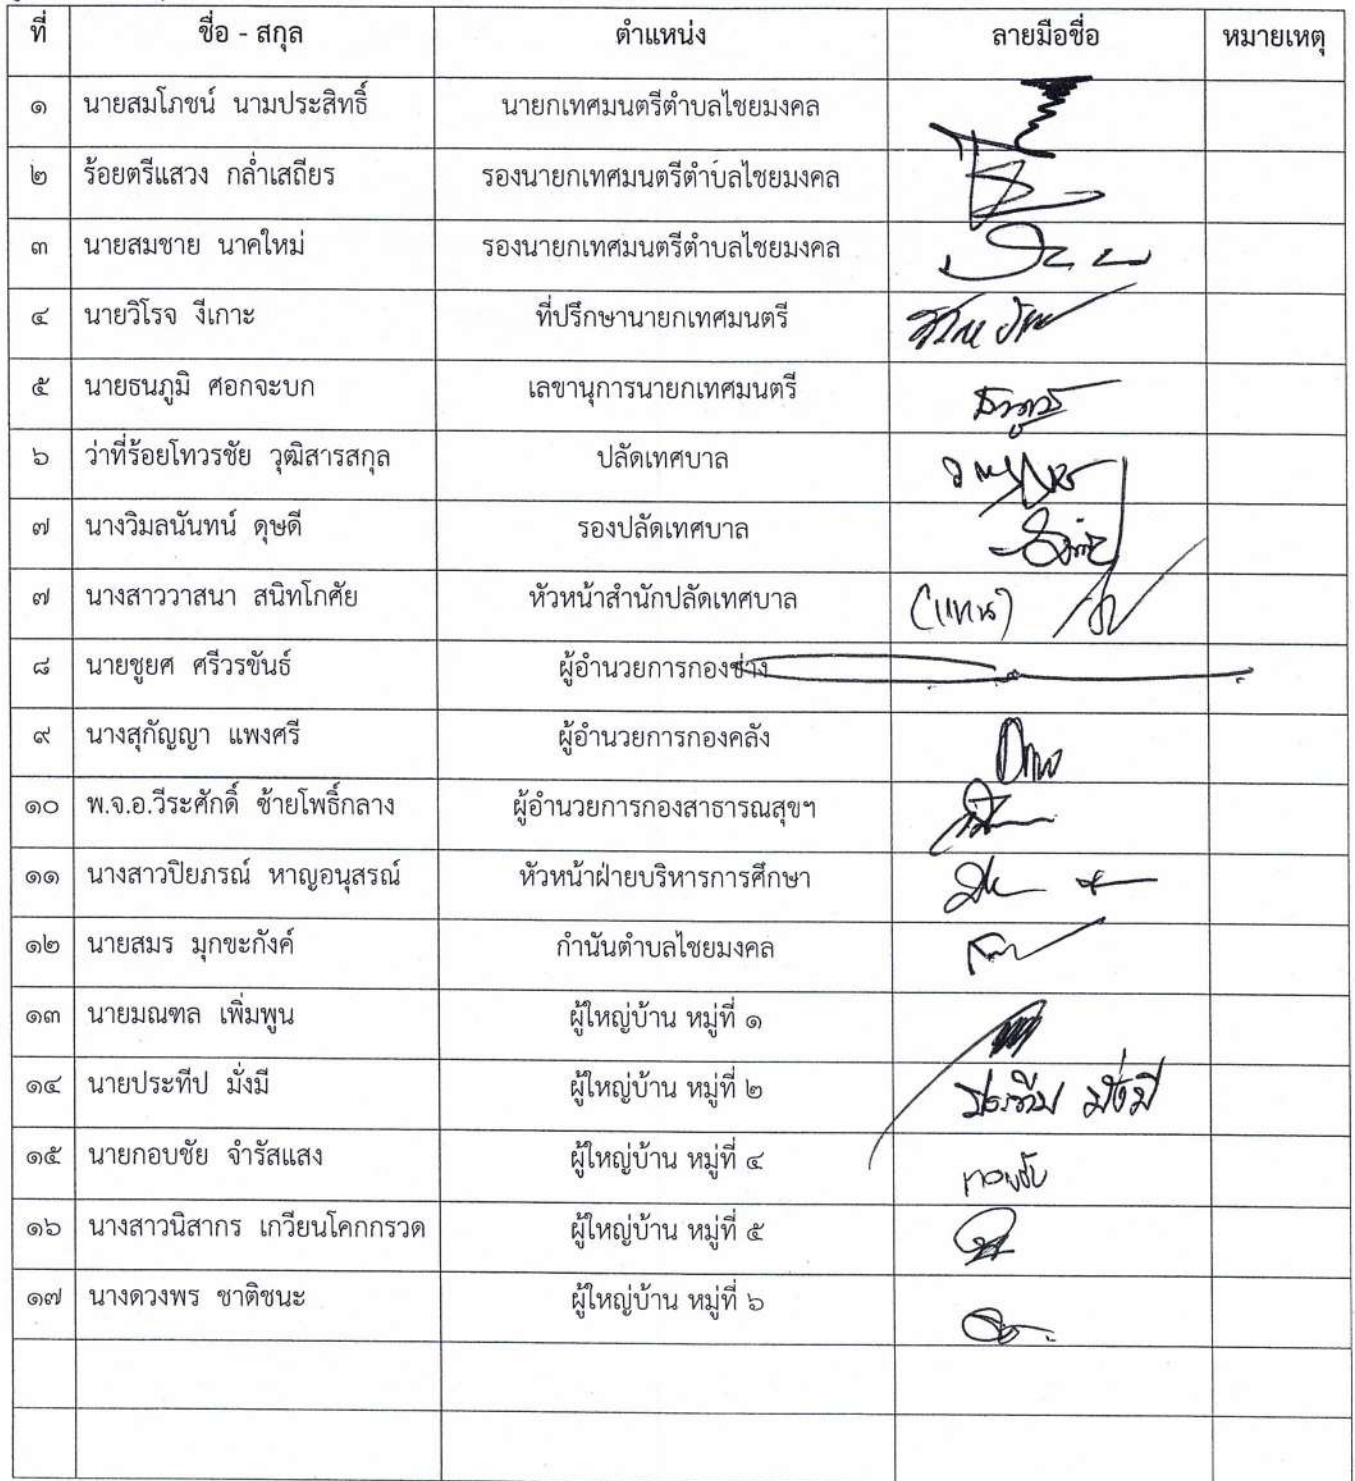 ที่ ชื่อ - สกุล ตำแหน่ง ลายมือชื่อ หมายเหตุ
๑ นายสมโภชน์ นามประสิทธิ์ นายกเทศมนตรีตำบลไชยมงคล
๒ ร้อยตรีแสวง กล่ำเสถียร รองนายกเทศมนตรีตำบลไชยมงคล
๓ นายสมชาย นาคใหม่ รองนายกเทศมนตรีตำบลไชยมงคล
๔ นายวิโรจ งีเกาะ ที่ปรึกษานายกเทศมนตรี
๕ นายธนภูมิ ศอกจะบก เลขานุการนายกเทศมนตรี
๖ ว่าที่ร้อยโทวรชัย วุฒิสารสกุล ปลัดเทศบาล
๗ นางวิมลนันทน์ ดุษดี รองปลัดเทศบาล
๗ นางสาววาสนา สนิทโกศัย หัวหน้าสำนักปลัดเทศบาล (แทน)
๘ นายชูยศ ศรีวรขันธ์ ผู้อำนวยการกองช่าง
๙ นางสุกัญญา แพงศรี ผู้อำนวยการกองคลัง
๑๐ พ.จ.อ.วีระศักดิ์ ซ้ายโพธิ์กลาง ผู้อำนวยการกองสาธารณสุขฯ
๑๑ นางสาวปิยภรณ์ หาญอนุสรณ์ หัวหน้าฝ่ายบริหารการศึกษา
๑๒ นายสมร มุกขะกังค์ กำนันตำบลไชยมงคล
๑๓ นายมณฑล เพิ่มพูน ผู้ใหญ่บ้าน หมู่ที่ ๑
๑๔ นายประทีป มั่งมี ผู้ใหญ่บ้าน หมู่ที่ ๒ ประทีป มั่งมี
๑๕ นายกอบชัย จำรัสแสง ผู้ใหญ่บ้าน หมู่ที่ ๔ กอบชัย
๑๖ นางสาวนิสากร เกวียนโคกกรวด ผู้ใหญ่บ้าน หมู่ที่ ๕
๑๗ นางดวงพร ชาติชนะ ผู้ใหญ่บ้าน หมู่ที่ ๖